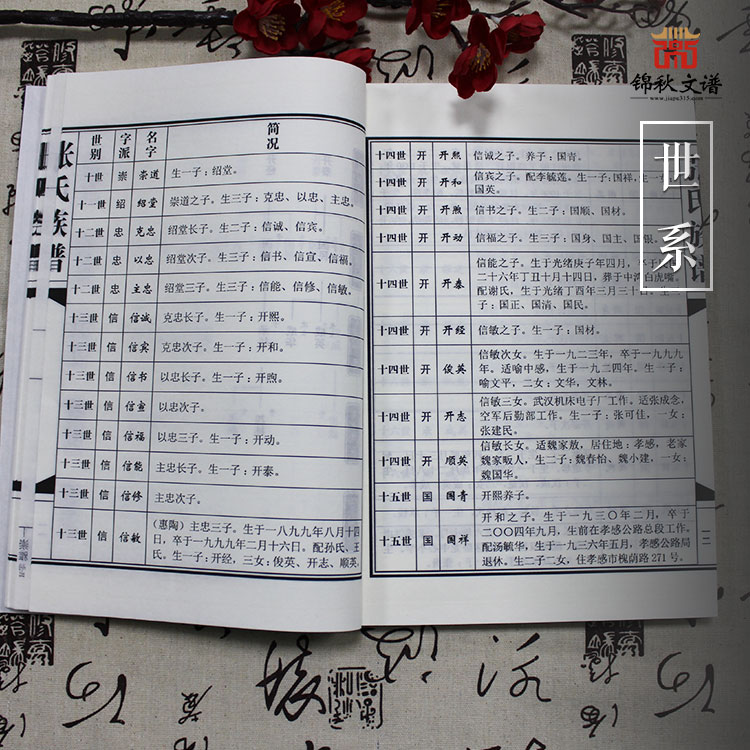 锦秋文谱
www.jiapu315.com
世系
张氏族谱
世别 字派 名字 简况
十世 崇 崇道 生一子：绍堂。
十一世 绍 绍堂 崇道之子。生三子：克忠、以忠、主忠。
十二世 忠 克忠 绍堂长子。生二子：信诚、信宾。
十二世 忠 以忠 绍堂次子。生三子：信书、信宣、信福。
十二世 忠 主忠 绍堂三子。生三子：信能、信修、信敏。
十三世 信 信诚 克忠长子。生一子：开熙。
十三世 信 信宾 克忠次子。生一子：开和。
十三世 信 信书 以忠长子。生一子：开煦。
十三世 信 信宣 以忠次子。
十三世 信 信福 以忠三子。生一子：开动。
十三世 信 信能 主忠长子。生一子：开泰。
十三世 信 信修 主忠次子。
十三世 信 信敏 (惠陶）主忠三子。生于一八九九年八月十四
日，卒于一九九九年二月十六日。配孙氏、王
氏。生一子：开经，三女：俊英、开志、顺英，
十四世 开 开熙 信诚之子。养子：国青。
十四世 开 开和 信宾之子。配李毓莲。生一子：国祥，生一
国英。
十四世 开 开煦 信书之子。生二子：国顺、国材。
十四世 开 开动 信福之子。生三子：国身、国主、国银。
十四世 开 开泰 信能之子。生于光绪庚子年四月，卒于
二十六年丁丑十月十四日，葬于中湾白虎嘴。
配谢氏，生于光绪丁酉年三月三十日。生
子：国正、国清、国民。
十四世 开 开经 信敏之子。生一子：国材。
十四世 开 俊英 信敏次女。生于一九二三年，卒于一九九九
年。适喻中感，生于一九二四年。生一子：
喻文平，二女：文华，文林。
十四世 开 开志 信敏三女。武汉机床电子厂工作。适张成念，
空军后勤部工作。生一子：张可佳，一女：
张建民。
十四世 开 顺英 信敏长女。适魏家放，居住地：孝感，老家
魏家畈人，生二子：魏春怡、魏小建，一女：
魏国华。
十五世 国 国青 开熙养子。
十五世 国 国祥 开和之子。生于一九三〇年二月，卒于
二〇〇四年九月，生前在孝感公路总段工作。
配汤毓华，生于一九三六年五月，孝感公路局
退休。生二子二女，住孝感市槐荫路271号。